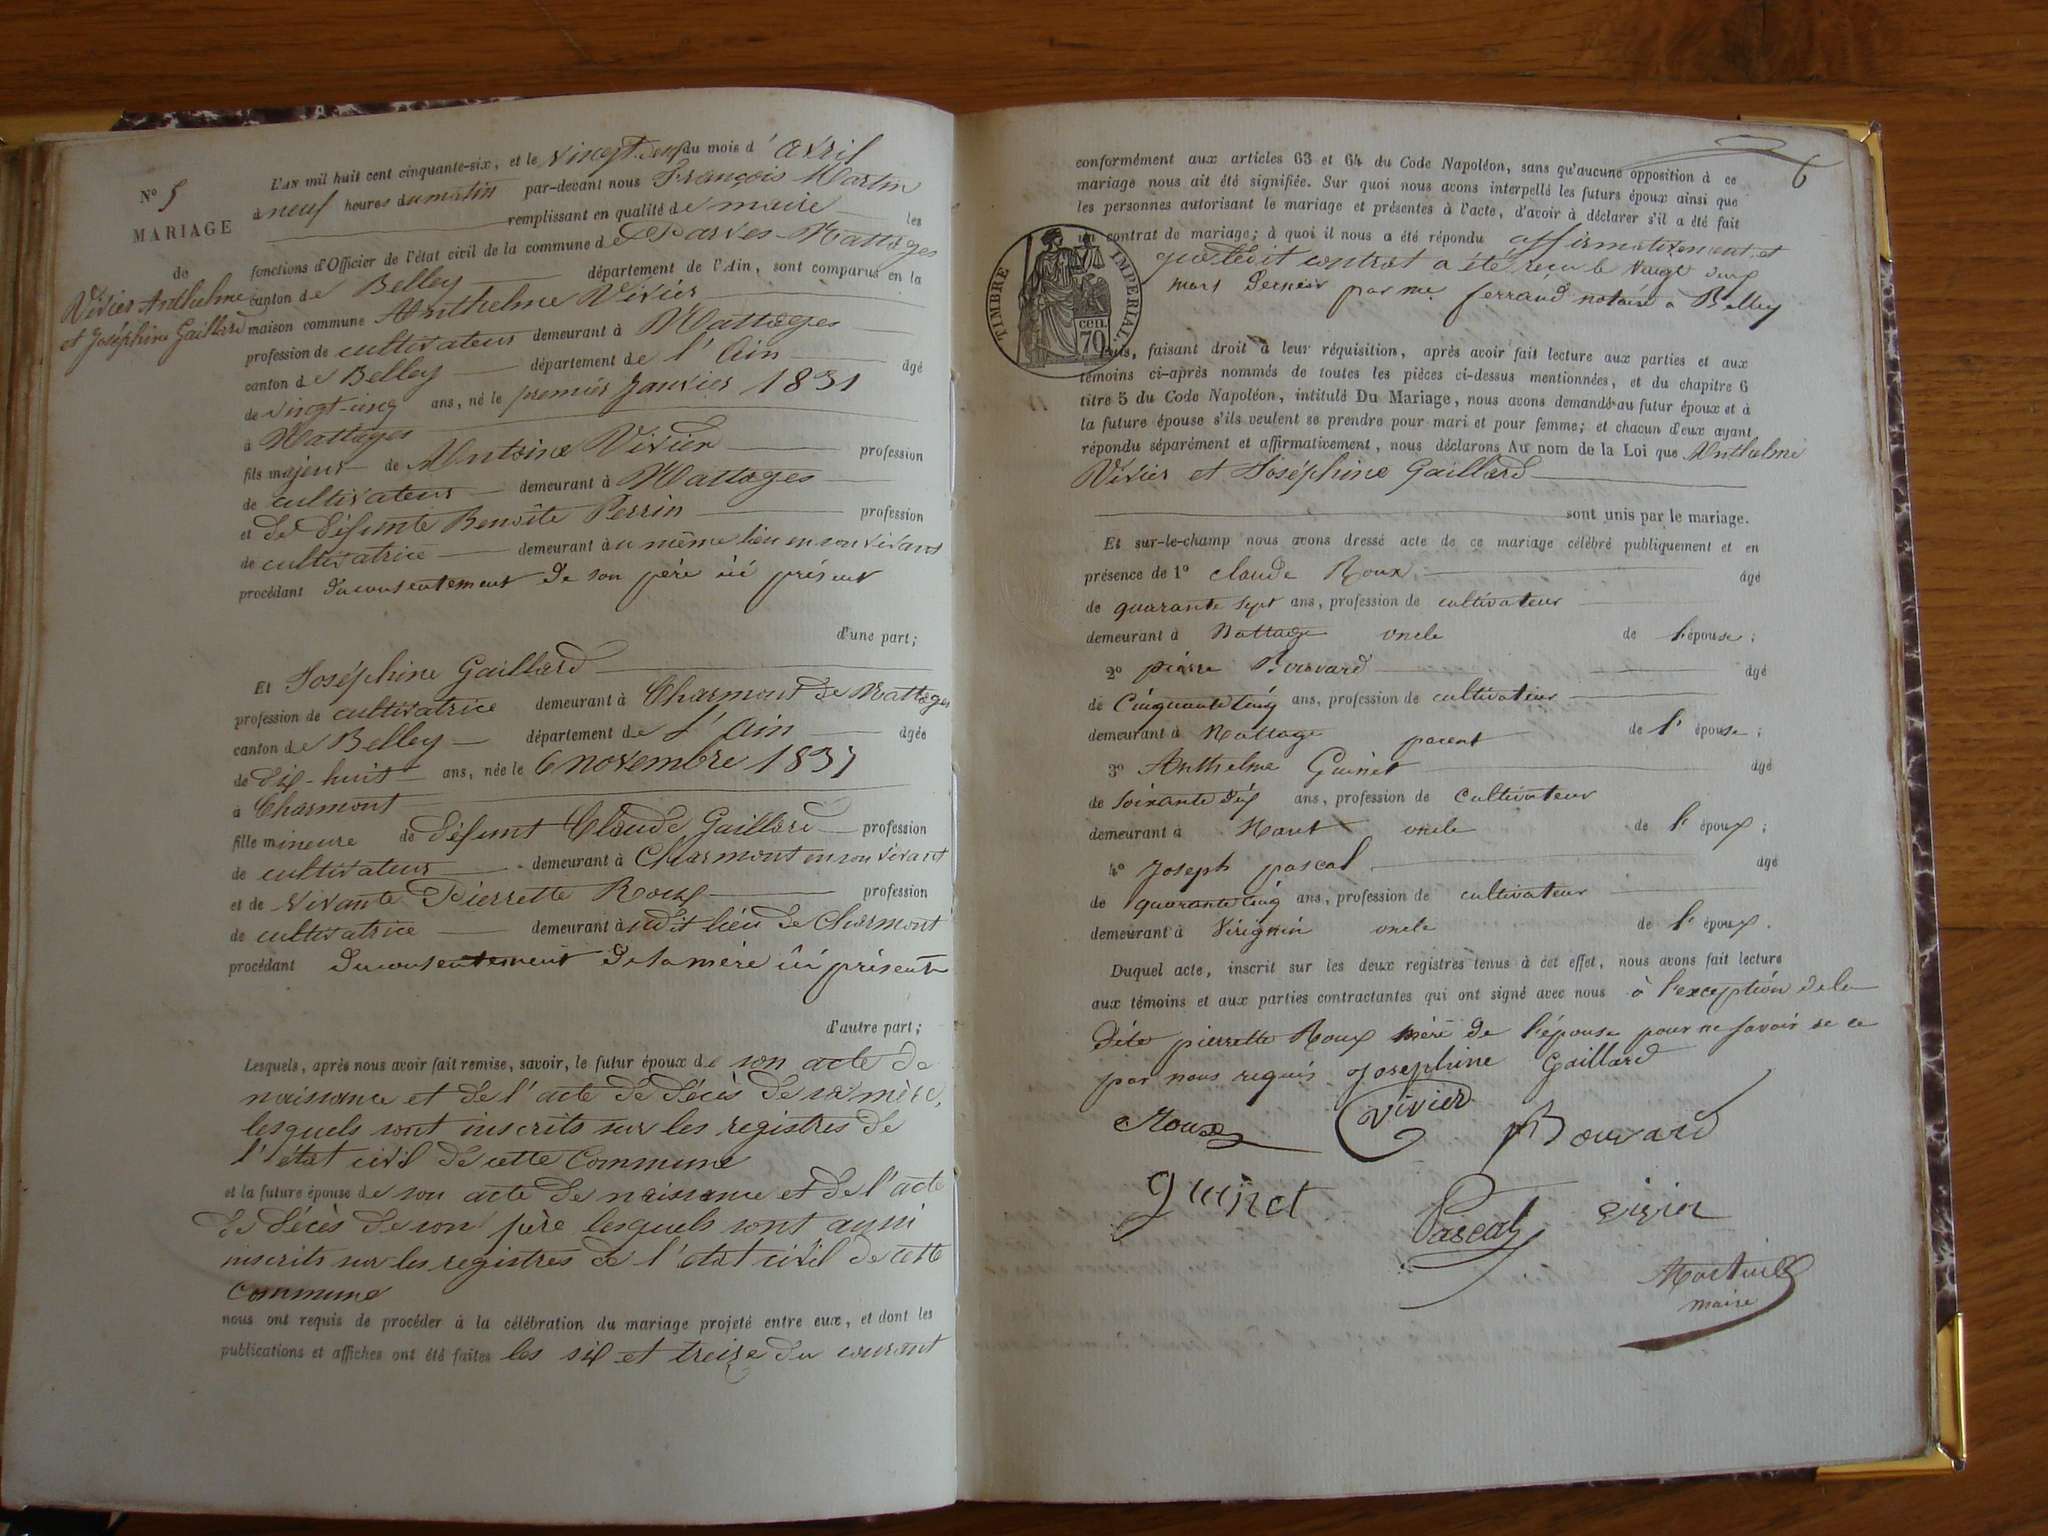 N° 5
MARIAGE
de
Vivier Anthelme
et Joséphine Gaillard
L'AN mil huit cent cinquante-six, et le vingt-deux du mois d'avril
à neuf heures du matin par-devant nous François Martin
remplissant en qualité de maire les
fonctions d'Officier de l'état civil de la commune de Parves-Nattages
canton de Belley département de l'Ain, sont comparus en la
maison commune Anthelme Vivier
profession de cultivateur demeurant à Nattages
canton de Belley département de l'Ain âgé
de vingt-cinq ans, né le premier Janvier 1831
à Nattages
fils majeur de Antoine Vivier profession
de cultivateur demeurant à Nattages
et de défunte Benoîte Perrin profession
de cultivatrice demeurant au même lieu en son vivant
procédant du consentement de son père ici présent
d'une part;
Et Joséphine Gaillard
profession de cultivatrice demeurant à Charmont de Nattages
canton de Belley département de l'Ain âgée
de dix-huit ans, née le 6 novembre 1837
à Charmont
fille mineure de défunt Claude Gaillard profession
de cultivateur demeurant à Charmont en son vivant
et de vivante Pierrette Roux profession
de cultivatrice demeurant audit lieu de Charmont
procédant du consentement de la mère ici présente
d'autre part;
Lesquels, après nous avoir fait remise, savoir, le futur époux de son acte de
naissance et de l'acte de décès de sa mère,
lesquels sont inscrits sur les registres de
l'état civil de cette Commune
et la future épouse de son acte de naissance et de l'acte
de décès de son père lesquels sont aussi
inscrits sur les registres de l'état civil de cette
Commune
nous ont requis de procéder à la célébration du mariage projeté entre eux, et dont les
publications et affiches ont été faites les six et treize du courant
6
conformément aux articles 63 et 64 du Code Napoléon, sans qu'aucune opposition à ce
mariage nous ait été signifiée. Sur quoi nous avons interpellé les futurs époux ainsi que
les personnes autorisant le mariage et présentes à l'acte, d'avoir à déclarer s'il a été fait
un contrat de mariage; à quoi il nous a été répondu affirmativement, et
que ledit contrat a été reçu le vingt deux
mars dernier par me ferrand notaire à Belley
TIMBRE IMPERIAL
70 CEN.
Puis, faisant droit à leur réquisition, après avoir fait lecture aux parties et aux
témoins ci-après nommés de toutes les pièces ci-dessus mentionnées, et du chapitre 6
titre 5 du Code Napoléon, intitulé Du Mariage, nous avons demandé au futur époux et à
la future épouse s'ils veulent se prendre pour mari et pour femme; et chacun d'eux ayant
répondu séparément et affirmativement, nous déclarons Au nom de la Loi que Anthelme
Vivier et Joséphine Gaillard
sont unis par le mariage.
Et sur-le-champ nous avons dressé acte de ce mariage célébré publiquement et en
présence de 1° Claude Roux âgé
de quarante sept ans, profession de cultivateur
demeurant à Nattage oncle de l'épouse;
2° pierre Bouvard âgé
de Cinquante cinq ans, profession de cultivateur
demeurant à Nattage parent de l'épouse;
3° Anthelme Guinet âgé
de soixante dix ans, profession de Cultivateur
demeurant à Nant oncle de l'époux;
4° Joseph pascal âgé
de quarante cinq ans, profession de cultivateur
demeurant à Virignin oncle de l'époux.
Duquel acte, inscrit sur les deux registres tenus à cet effet, nous avons fait lecture
aux témoins et aux parties contractantes qui ont signé avec nous à l'exception de la
dite pierrette Roux mère de l'épouse pour ne savoir de ce
par nous requis Josephine Gaillard
Roux Vivier Bouvard
guinet Pascal vivier
Martin
maire